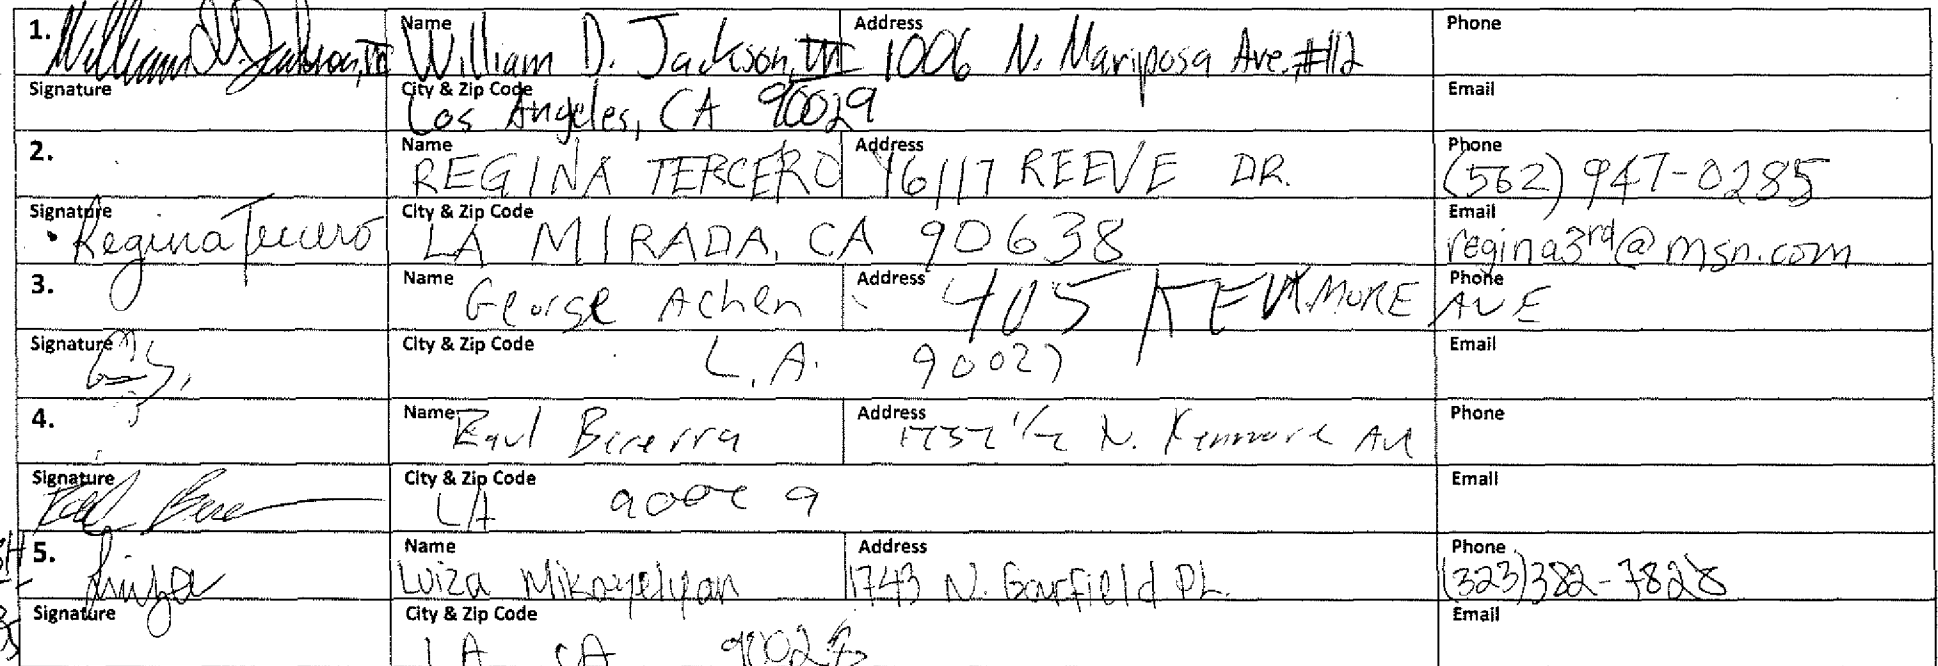 1. William D. Jackson, III Name William D. Jackson, III Address 1006 N. Mariposa Ave. #112 Phone
Signature City & Zip Code Los Angeles, CA 90029 Email
2. Name REGINA TERCERO Address 16117 REEVE DR. Phone (562) 947-0285
Signature Regina Tercero City & Zip Code LA MIRADA, CA 90638 Email regina3rd@msn.com
3. Name George Achen Address 405 KENMORE AVE Phone
Signature City & Zip Code L.A. 90027 Email
4. Name Raul Becerra Address 1757 1/2 N. Kenmore Ave Phone
Signature City & Zip Code LA Email
5. Luiza Name Luiza Mikayelyan Address 1743 N. Garfield PL. Phone (323)382-7828
Signature City & Zip Code LA CA 90028 Email